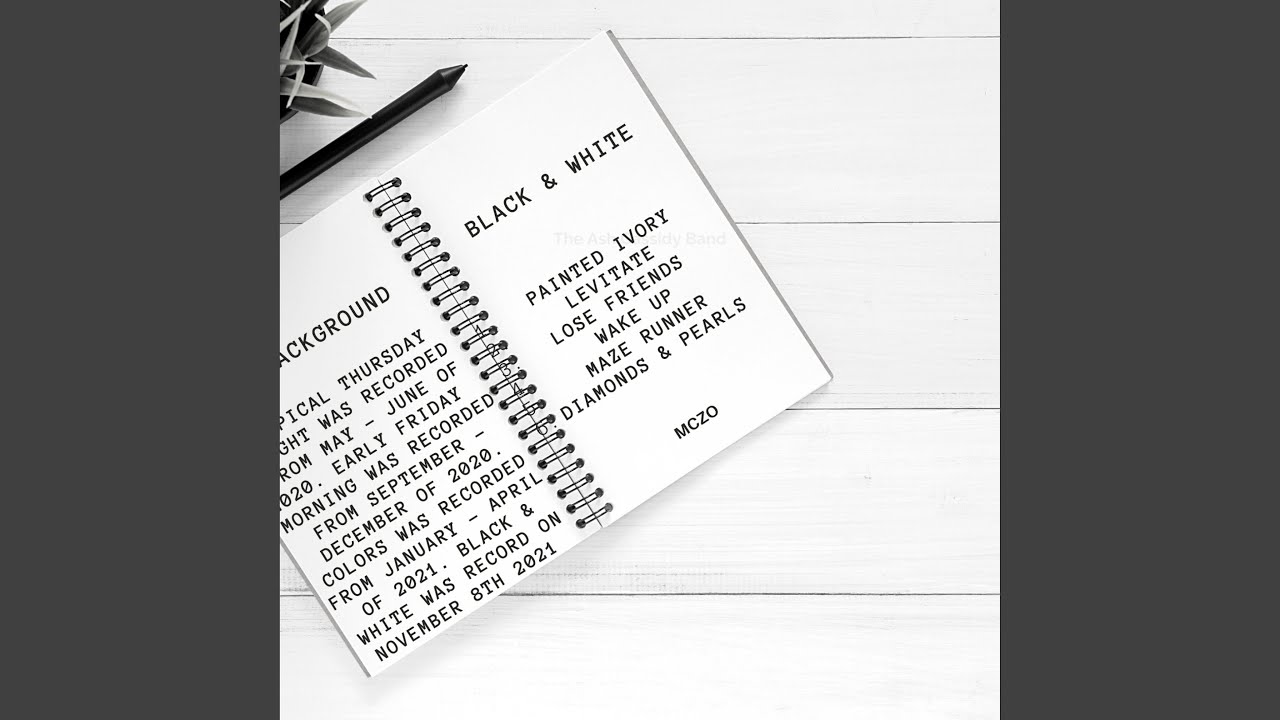 ACKGROUND
PICAL THURSDAY
GHT WAS RECORDED
ROM MAY - JUNE OF
020. EARLY FRIDAY
MORNING WAS RECORDED
FROM SEPTEMBER -
DECEMBER OF 2020.
COLORS WAS RECORDED
FROM JANUARY - APRIL
OF 2021. BLACK &
WHITE WAS RECORD ON
NOVEMBER 8TH 2021
BLACK & WHITE
PAINTED IVORY
LEVITATE
LOSE FRIENDS
WAKE UP
MAZE RUNNER
DIAMONDS & PEARLS
MCZO
The Band